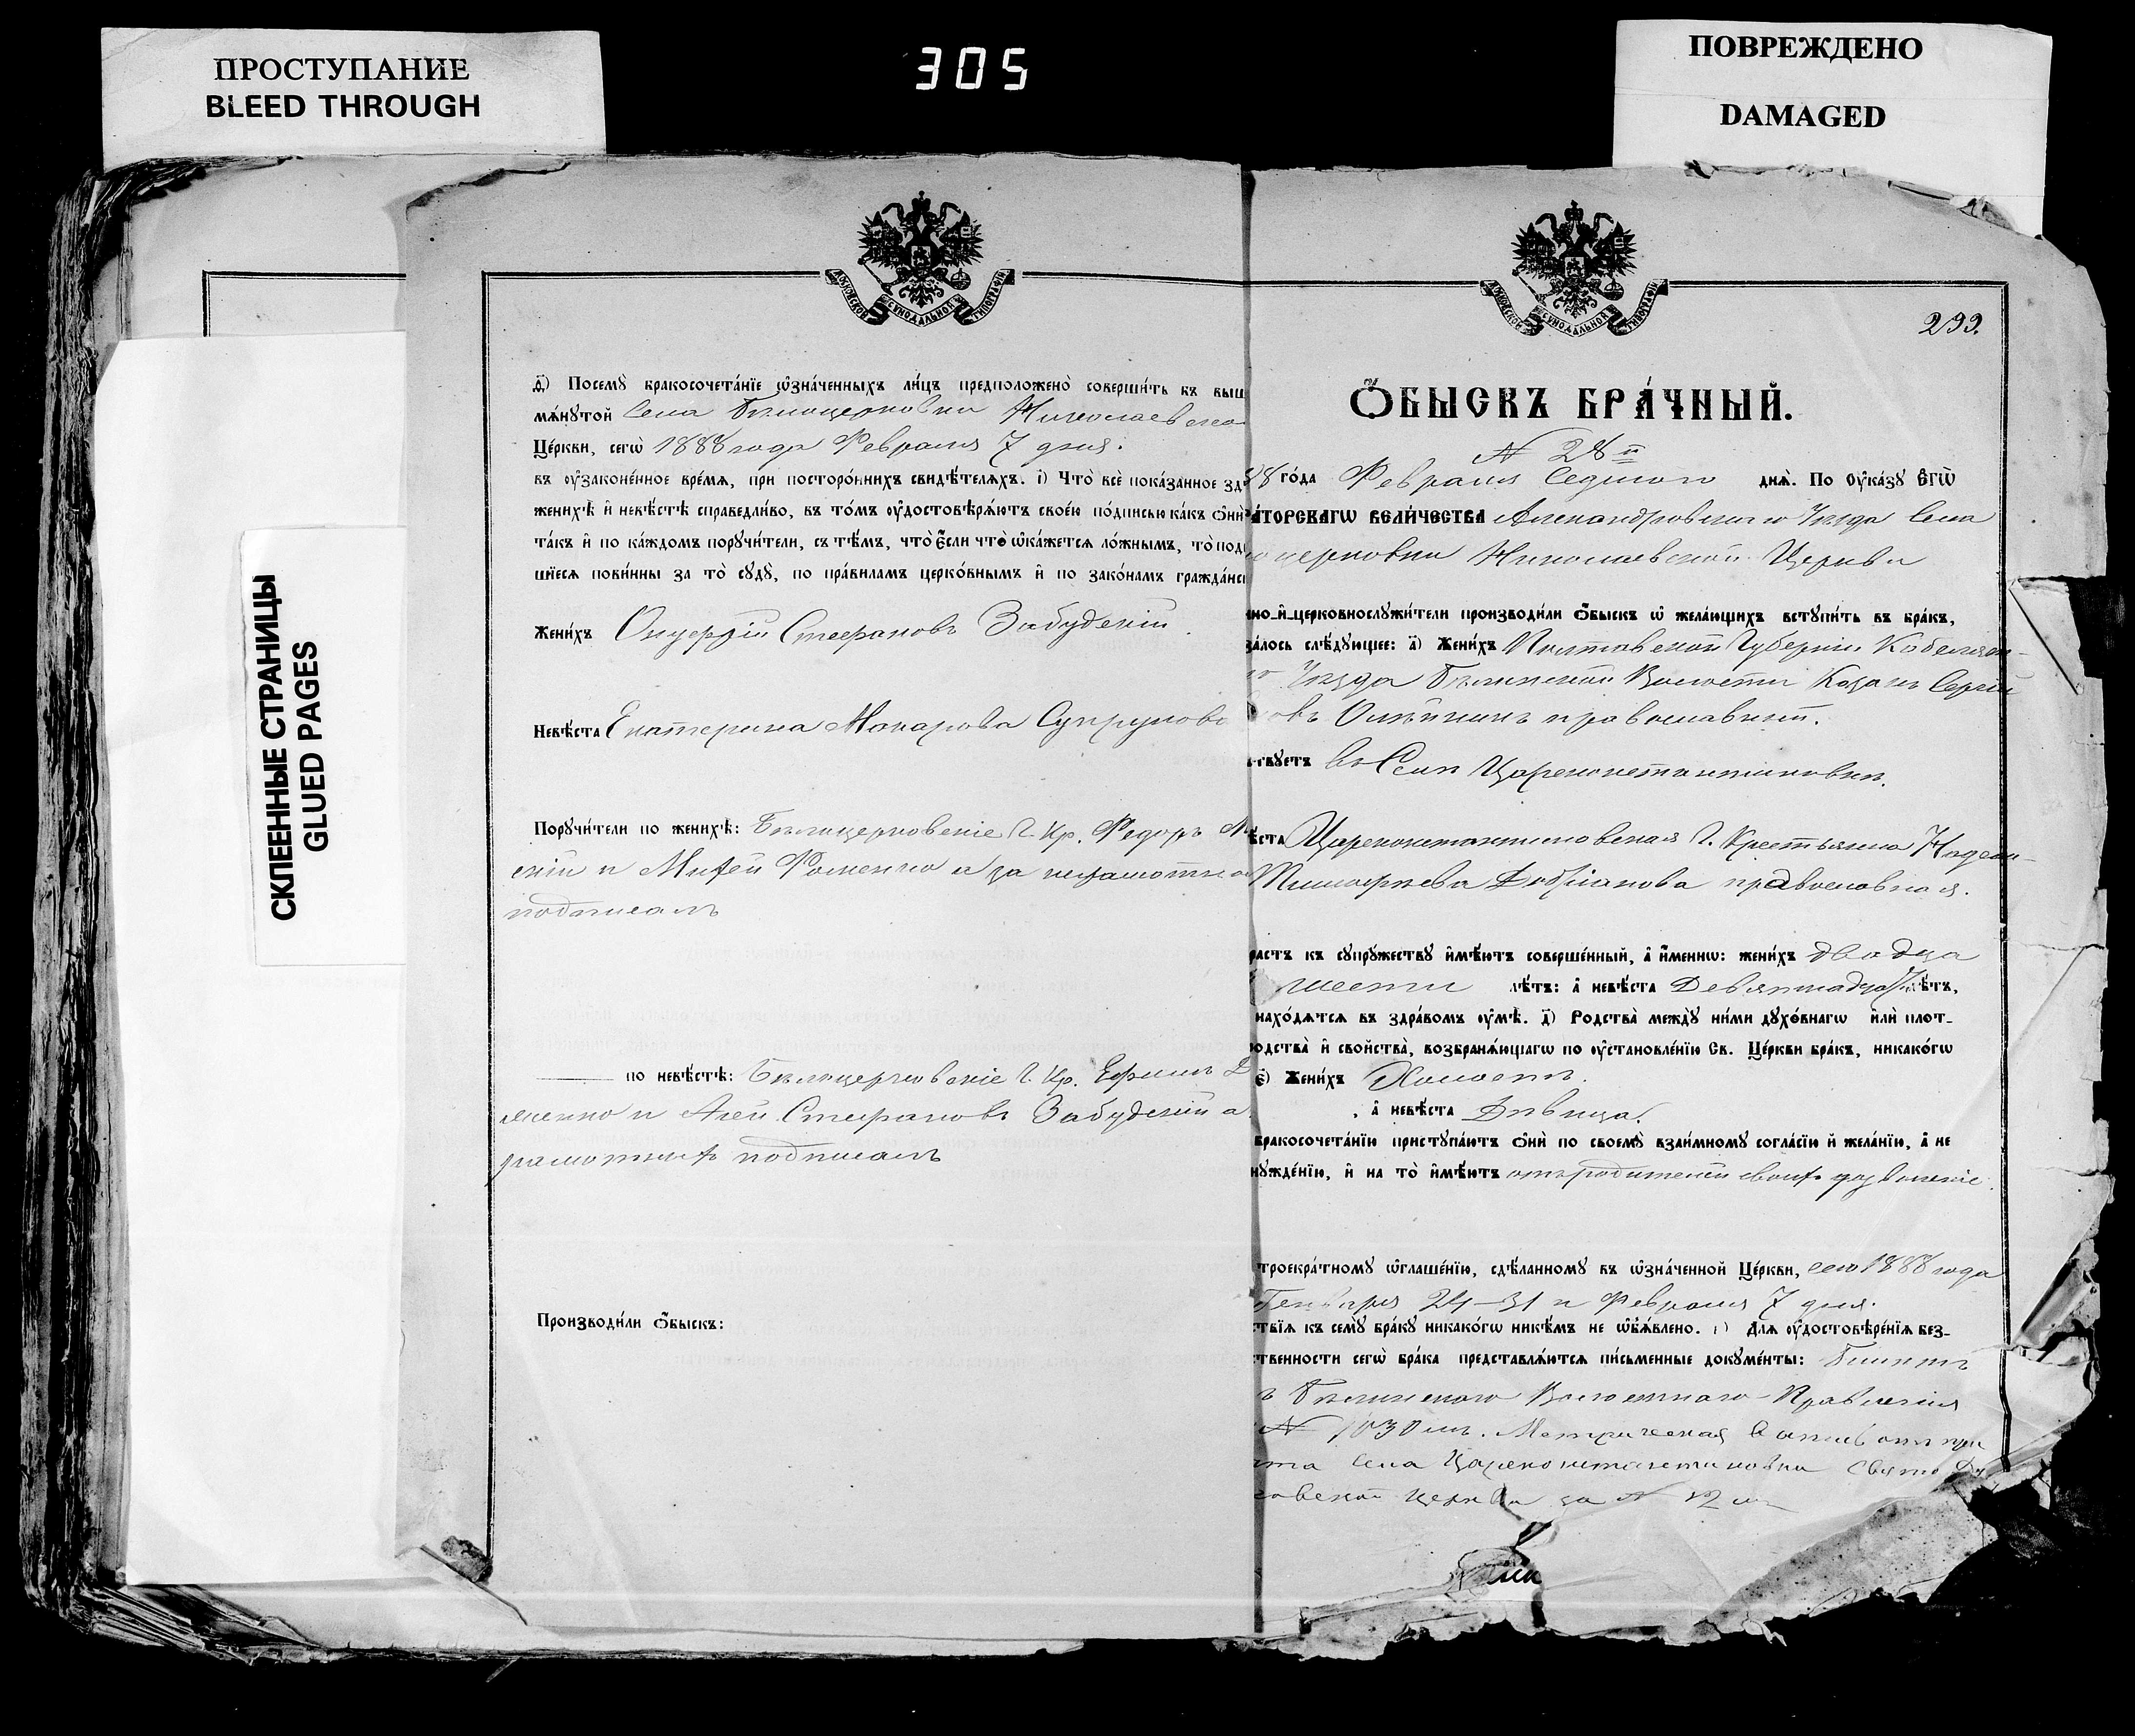 ПРОСТУПАНИЕ
BLEED THROUGH
305
ПОВРЕЖДЕНО
DAMAGED
СКЛЕЕННЫЕ СТРАНИЦЫ
GLUED PAGES
МОСКОВСКОЙ СѴНОДАЛЬНОЙ ТИПОГРАФІИ
д҃і) Посемꙋ̀ бракосочета́нїе ѡ҆зна́ченныхъ ли́цъ предположено̀ соверши́ть въ выш
мѧ́нꙋтой Села Бѣлоцерковки Николаевско
Це́ркви, сегѡ̀ 1888 года Февраля 7 дня.
въ ᲂу҆зако́не́нное вре́мѧ, при посторо́ннихъ свидѣ́телѧхъ. і҃) Что̀ всѐ пока́занное зд
женихѣ̀ и҆ невѣ́стѣ справедли́во, въ то́мъ ᲂу҆достовѣрѧ́ютъ свое́ю по́дписью ка́къ ѻ҆нѝ
та́къ и҆ по ка́ждомъ порꙋчи́тели, съ тѣ́мъ, что̀ є҆́сли что̀ ѡ҆ка́жетсѧ ло́жнымъ, то̀ под
шїесѧ пови́нны за то̀ сꙋдꙋ̀, по пра́виламъ церко́внымъ и҆ по зако́намъ гражда́нс
Жени́хъ Онуфрій Стефановъ Забудскій.
Невѣ́ста Екатерина Макарова Супрунова
Порꙋчи́тели по женихѣ̀: Бѣлоцерковскіе Г. Кр. Федоръ
скій и Михей Фоменко а за неграмотн
подписалъ
по невѣ́стѣ: Бѣлоцерковскіе Г. Кр. Ефимъ Д
менко и Стефановъ Забудскій а
грамотныхъ подписалъ
Производи́ли ѻ҆́быскъ:
МОСКОВСКОЙ СѴНОДАЛЬНОЙ ТИПОГРАФІИ
299.
Ѻ҆́БЫСКЪ БРА́ЧНЫЙ.
№ 28й
88 го́да Февраля Седмого днѧ̀. По Оу҆ка́зꙋ Є҆гѡ̀
а́торскагѡ вели́чества Александровского Уѣзда Села
оцерковки Николаевской Церкви
но-и҆-церковнослꙋжи́тели производи́ли ѻ҆́быскъ ѡ҆ жела́ющихъ встꙋпи́ть въ бра́къ,
за́лось слѣ́дꙋющее: а҃) Жени́хъ Полтавской Губерніи Кобеляк-
го Уѣзда Бѣликской Волости Козакъ Сергій
овъ Олѣйникъ православный.
ствꙋетъ въ Селѣ Цареконстантиновкѣ.
ѣста Цареконстантиновская Г. Крестьянка Надеж-
Тимофѣева православная.
растъ къ сꙋпрꙋ́жествꙋ и҆мѣ́ютъ соверше́нный, а҆ и҆́меннѡ: жени́хъ двадца
шести лѣ́тъ: а҆ невѣ́ста Девятнадцати лѣ́тъ,
нахо́дѧтсѧ въ здра́вомъ ᲂу҆мѣ̀. д҃) Родства̀ междꙋ̀ ни́ми дꙋхо́внагѡ и҆лѝ плот-
родства̀ и҆ сво́йства, возбранѧ́ющагѡ по ᲂу҆становле́нїю Св. Це́ркви бра́къ, никако́гѡ
є҃) Жени́хъ Холостъ.
а҆ невѣ́ста Дѣвица.
бракосочета́нїю пристꙋпа́ютъ ѻ҆нѝ по своемꙋ̀ взаи́мномꙋ согла́сїю и҆ жела́нїю, а҆ не
нꙋжде́нїю, и҆ на то̀ и҆мѣ́ютъ отъ родителей своихъ дозволеніе.
троекра́тномꙋ ѡ҆глаше́нїю, сдѣ́ланномꙋ въ ѡ҆зна́ченной Це́ркви, сего 1888 года
Генваря 24-31 и Февраля 7 дня.
ствїѧ къ семꙋ̀ бра́кꙋ никако́гѡ никѣ́мъ не ѡ҆б̾ѧ́влено. Длѧ ᲂу҆достовѣре́нїѧ без-
ственности сегѡ̀ бра́ка представлѧ́ютсѧ пи́сьменные докꙋме́нты: Билетъ
Бѣликского Волостного Правленія
№ 1030мъ. Метрическая Выпись отъ при
чта Села Цареконстантиновки Свято Ду
ховской Церкви за № 12мъ